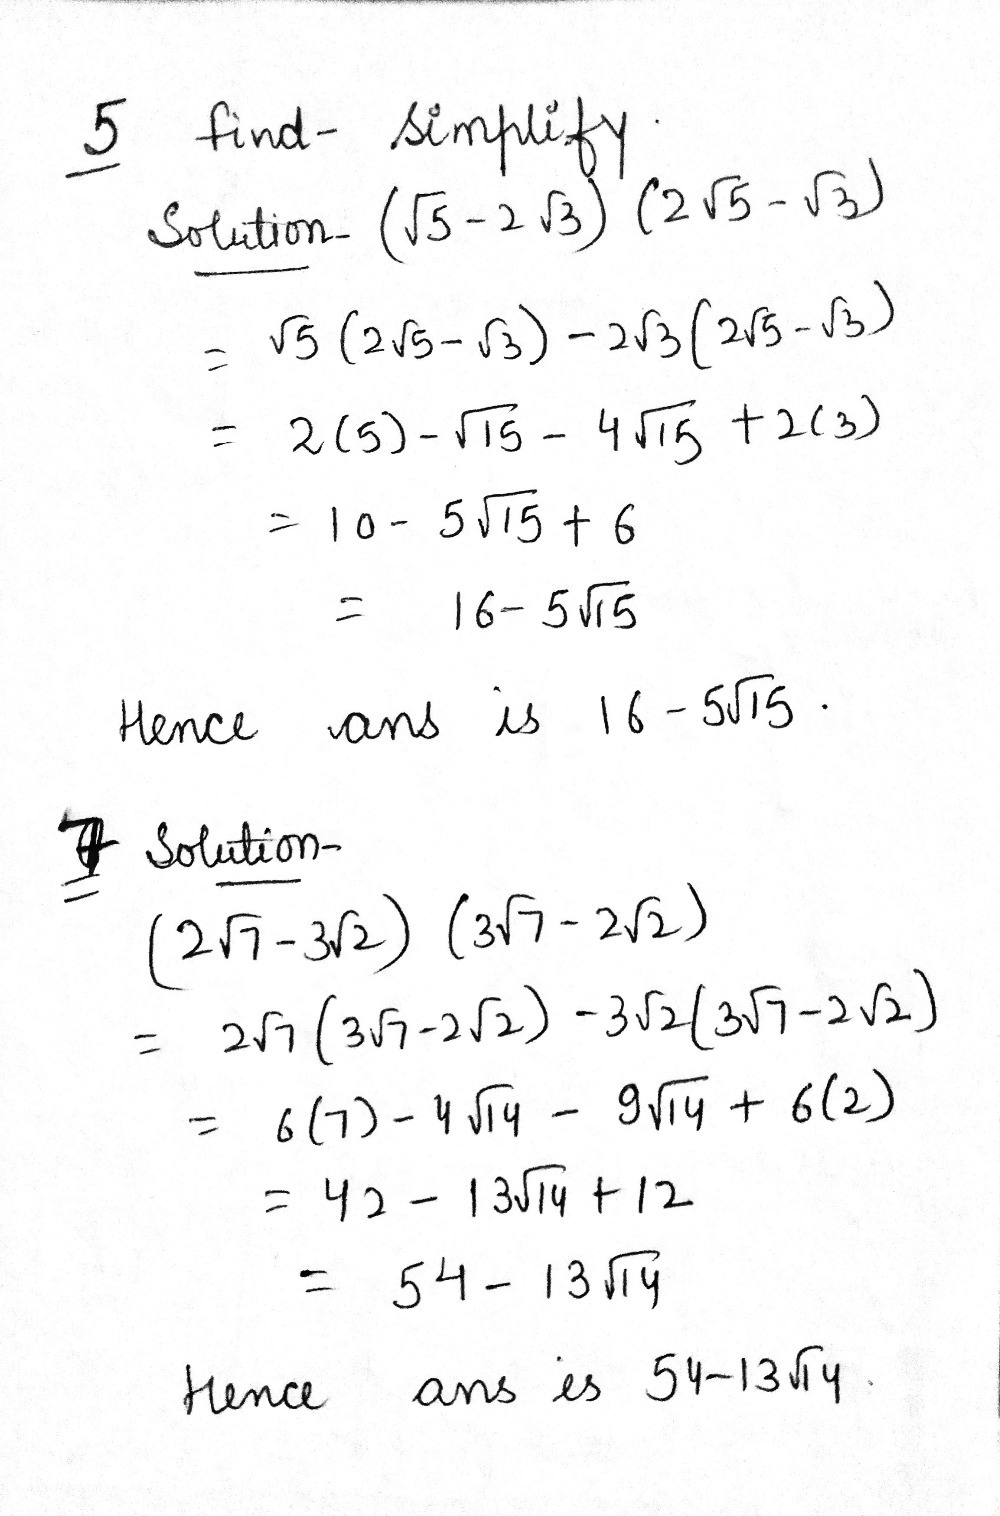 5 find- simplify.
Solution- (√5-2√3) (2√5-√3)
= √5 (2√5-√3) -2√3(2√5-√3)
= 2(5)-√15 - 4√15 +2(3)
= 10- 5√15 + 6
= 16- 5√15
Hence ans is 16-5√15.
7 Solution-
(2√7-3√2) (3√7-2√2)
= 2√7(3√7-2√2) -3√2(3√7-2√2)
= 6(7)-4√14 - 9√14 + 6(2)
= 42 - 13√14 +12
= 54- 13√14
Hence ans is 54-13√14.